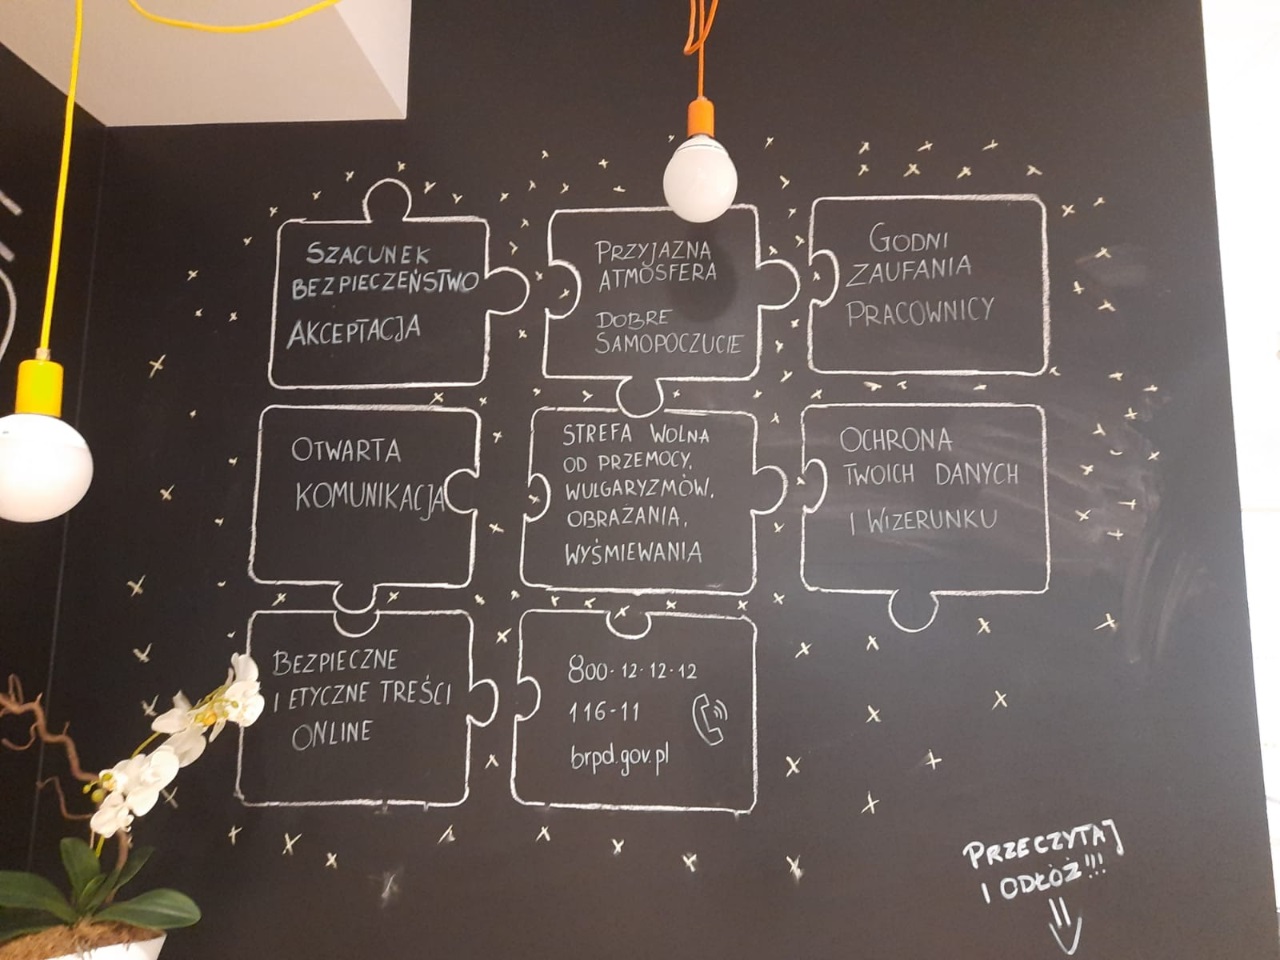 SZACUNEK
BEZPIECZEŃSTWO
AKCEPTACJA
PRZYJAZNA
ATMOSFERA
DOBRE
SAMOPOCZUCIE
GODNI
ZAUFANIA
PRACOWNICY
OTWARTA
KOMUNIKACJA
STREFA WOLNA
OD PRZEMOCY,
WULGARYZMÓW,
OBRAŻANIA,
WYŚMIEWANIA
OCHRONA
TWOICH DANYCH
I WIZERUNKU
BEZPIECZNE
I ETYCZNE TREŚCI
ONLINE
800-12-12-12
116-11
brpd.gov.pl
PRZECZYTAJ
I ODŁÓŻ!!!